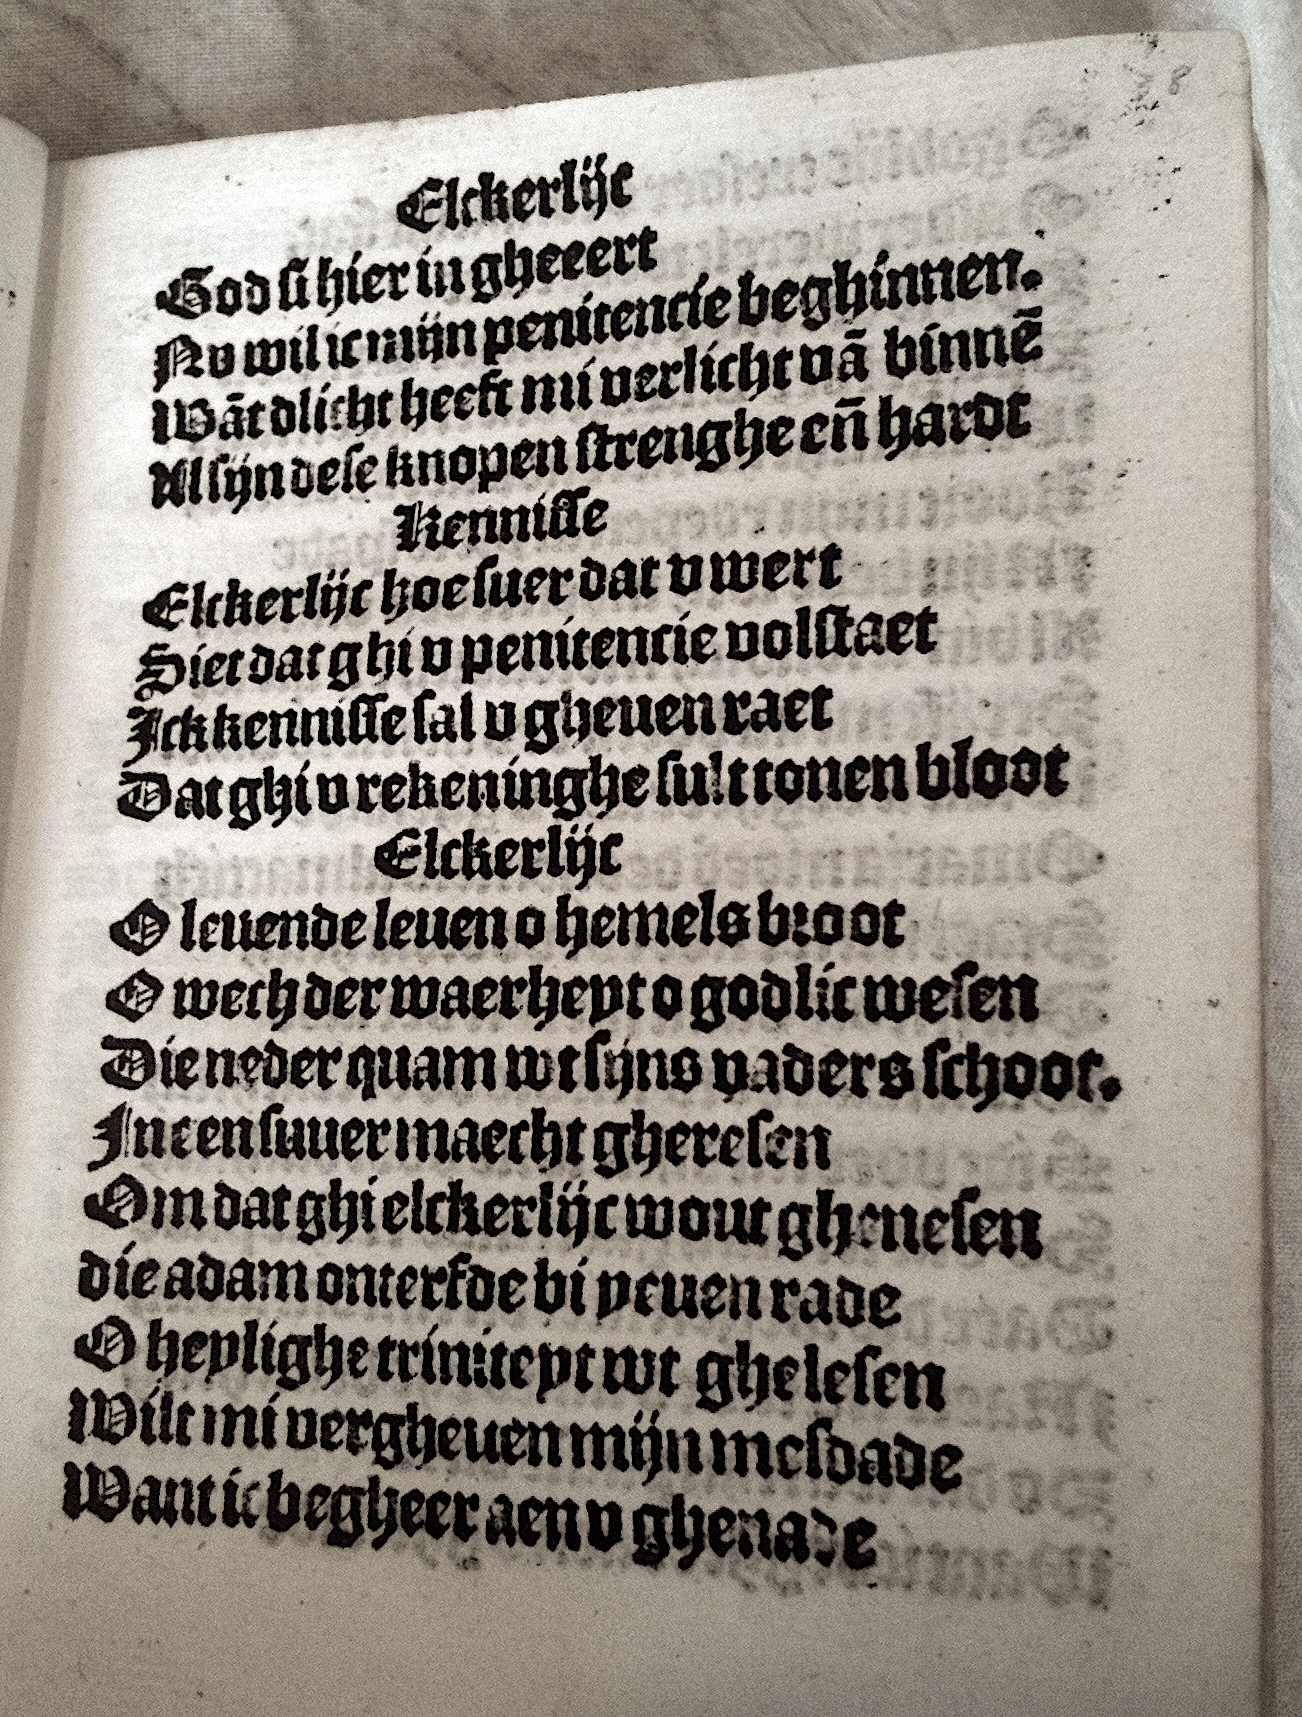 Elckerlijc
God si hier in gheeert
Nv wil ic mijn penitencie beghinnen.
Wāt dlicht heeft mi verlicht vā binnē
Al sijn dese knopen strenghe eñ hardt
Kennisse
Elckerlijc hoe suer dat v wert
Siet dat ghi v penitencie volstaet
Ick kennisse sal v gheuen raet
Dat ghi v rekeninghe sult tonen bloot
Elckerlijc
O leuende leuen o hemels broot
O wech der waerheyt o godlic wesen
Die neder quam wt sijns vaders schoot.
In een suuer maecht gheresen
Om dat ghi elckerlijc wout ghenesen
die adam onterfde bi yeuen rade
O heylighe triniteyt wt ghelesen
Wilt mi vergheuen mijn mesdade
Want ic begheer aen v ghenade
8